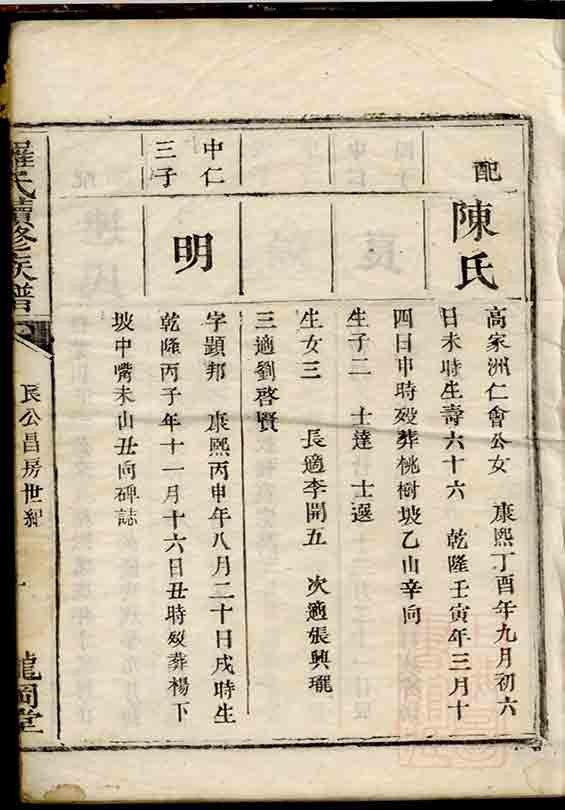 配
陳氏
高家洲仁會公女　康熙丁酉年九月初六
日未時生壽六十六　乾隆壬寅年三月十
四日申時歿葬桃樹坡乙山辛向
生子二　士達　士選
生女三　長適李開五　次適張興瓏
三適劉啓賢
中仁
三子
明
字顕邦　康熙丙申年八月二十日戌時生
乾隆丙子年十一月十六日丑時歿葬楊下
坡中嘴未山丑向碑誌
羅氏續修族譜
良公昌房世紀
龍岡堂